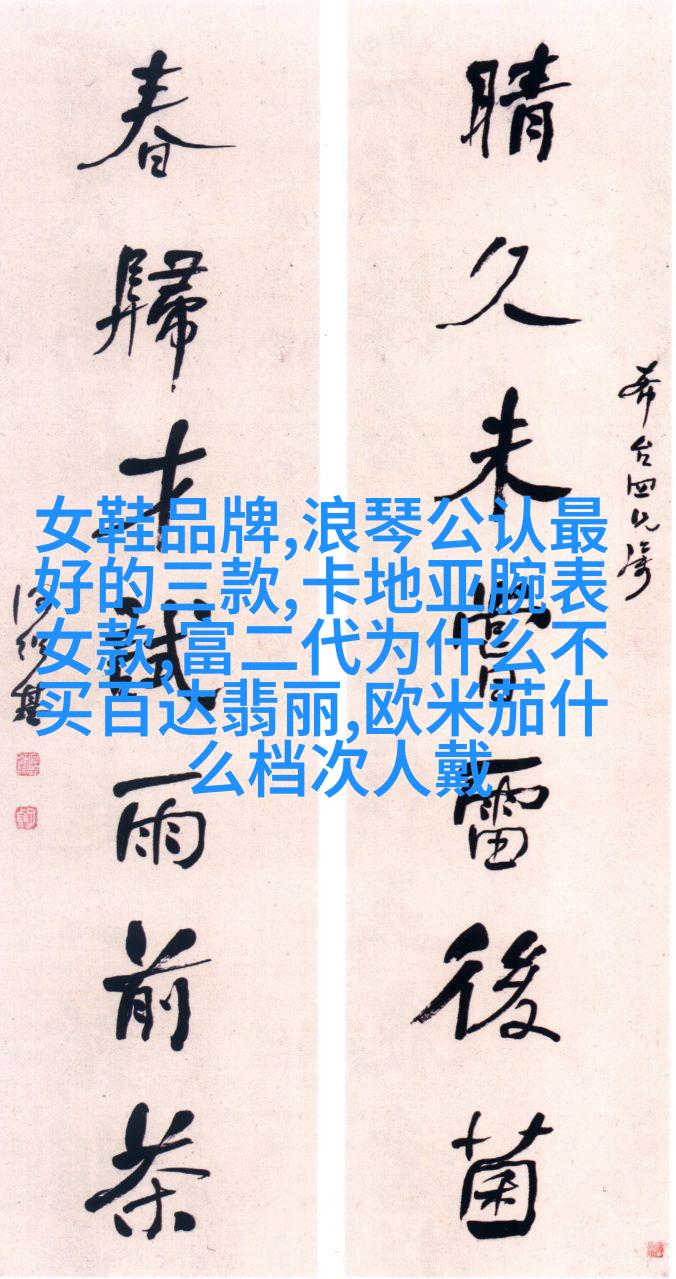 晴久未嘗雷後菌
春歸才試雨前茶
何紹基
女鞋品牌,浪琴公认最
好的三款,卡地亚腕表
女款,富二代为什么不
买百达翡丽,欧米茄什
么档次人戴